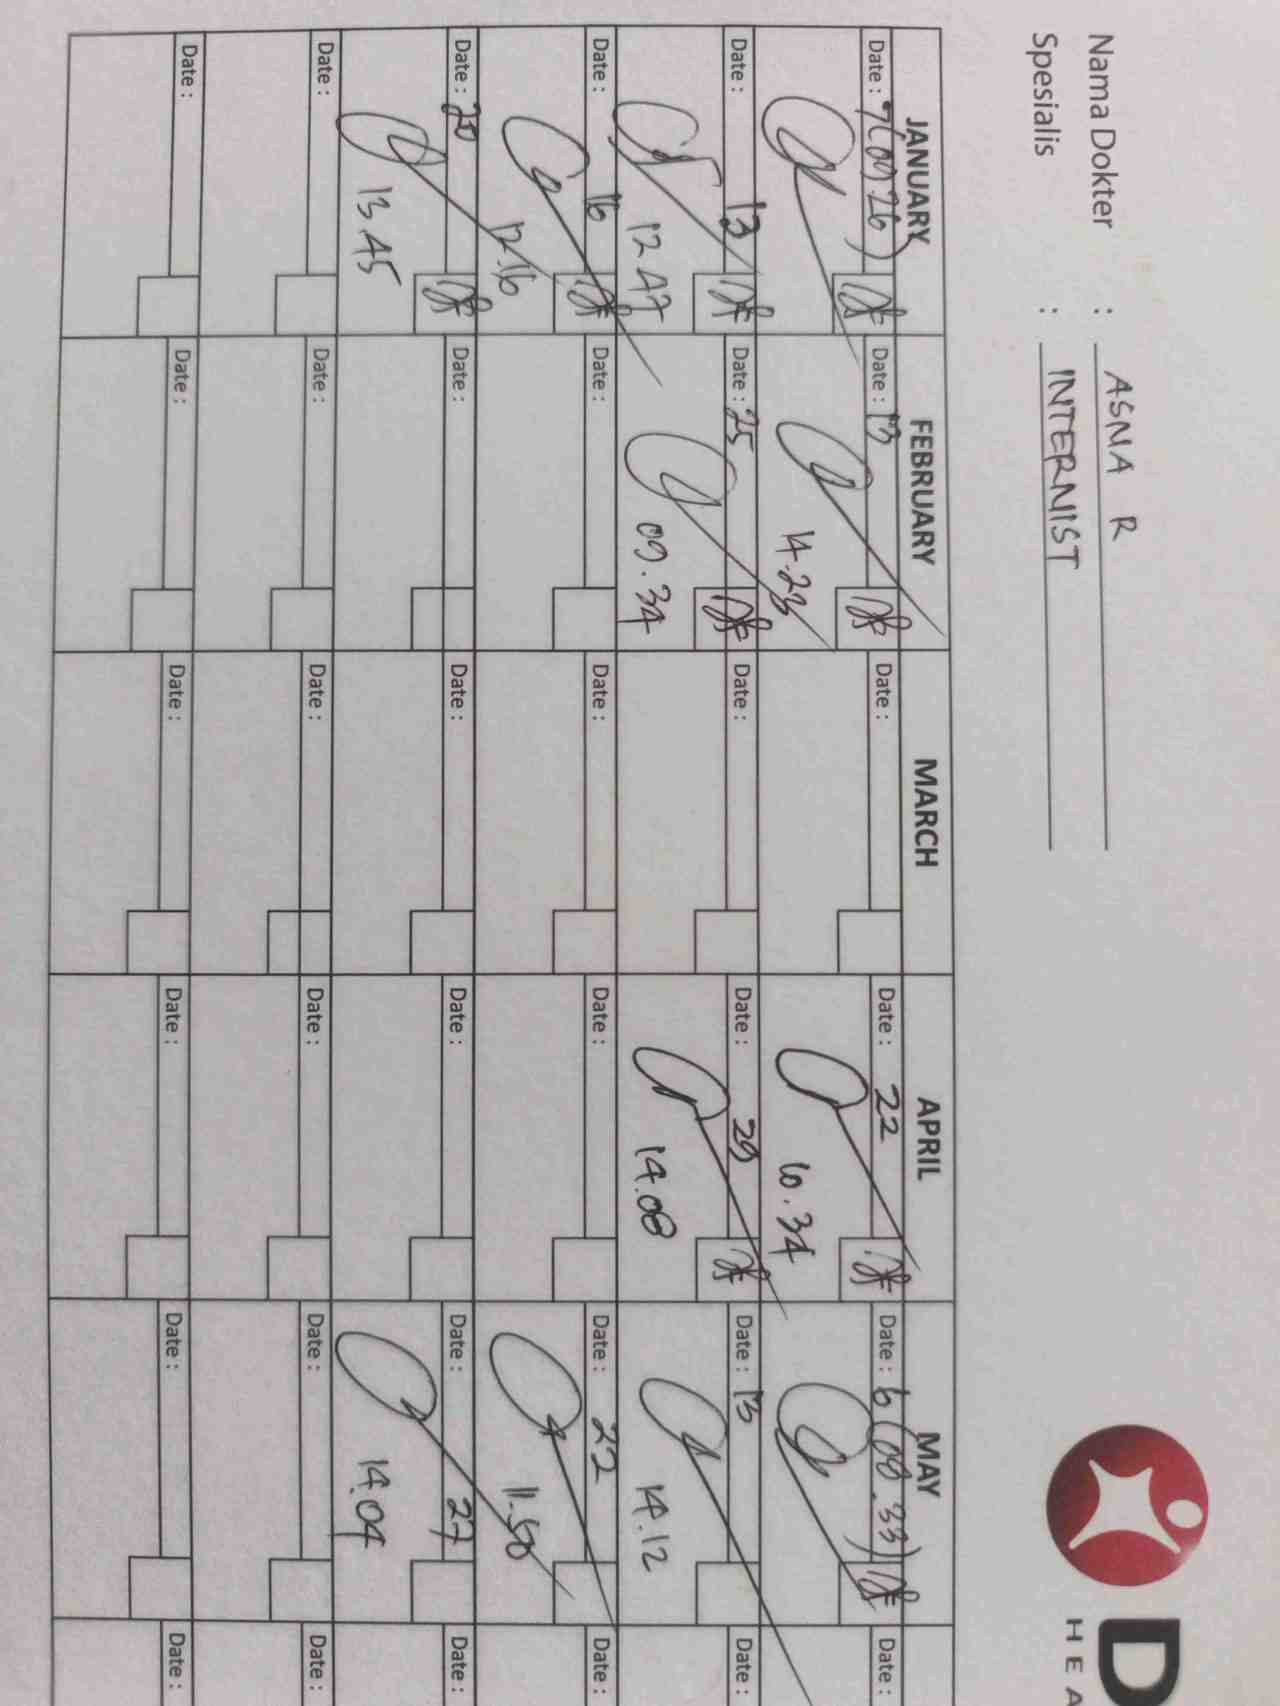 Nama Dokter : ASNA R
Spesialis : INTERNIST
D
HEA
JANUARY FEBRUARY MARCH APRIL MAY
Date : 7 (09.26) Date : 13 Date : Date : 22 Date : 6 (08.33)
14.23 10.34
Date : 13 Date : 25 Date : Date : 29 Date : 13 Date :
12.47 09.34 14.08 14.12
Date : 16 Date : Date : Date : Date : 22 Date :
12.16 11.50
Date : Date : Date : Date : Date : 27 Date :
13.45 14.04
Date : Date : Date : Date : Date : Date :
Date : Date : Date : Date : Date : Date :